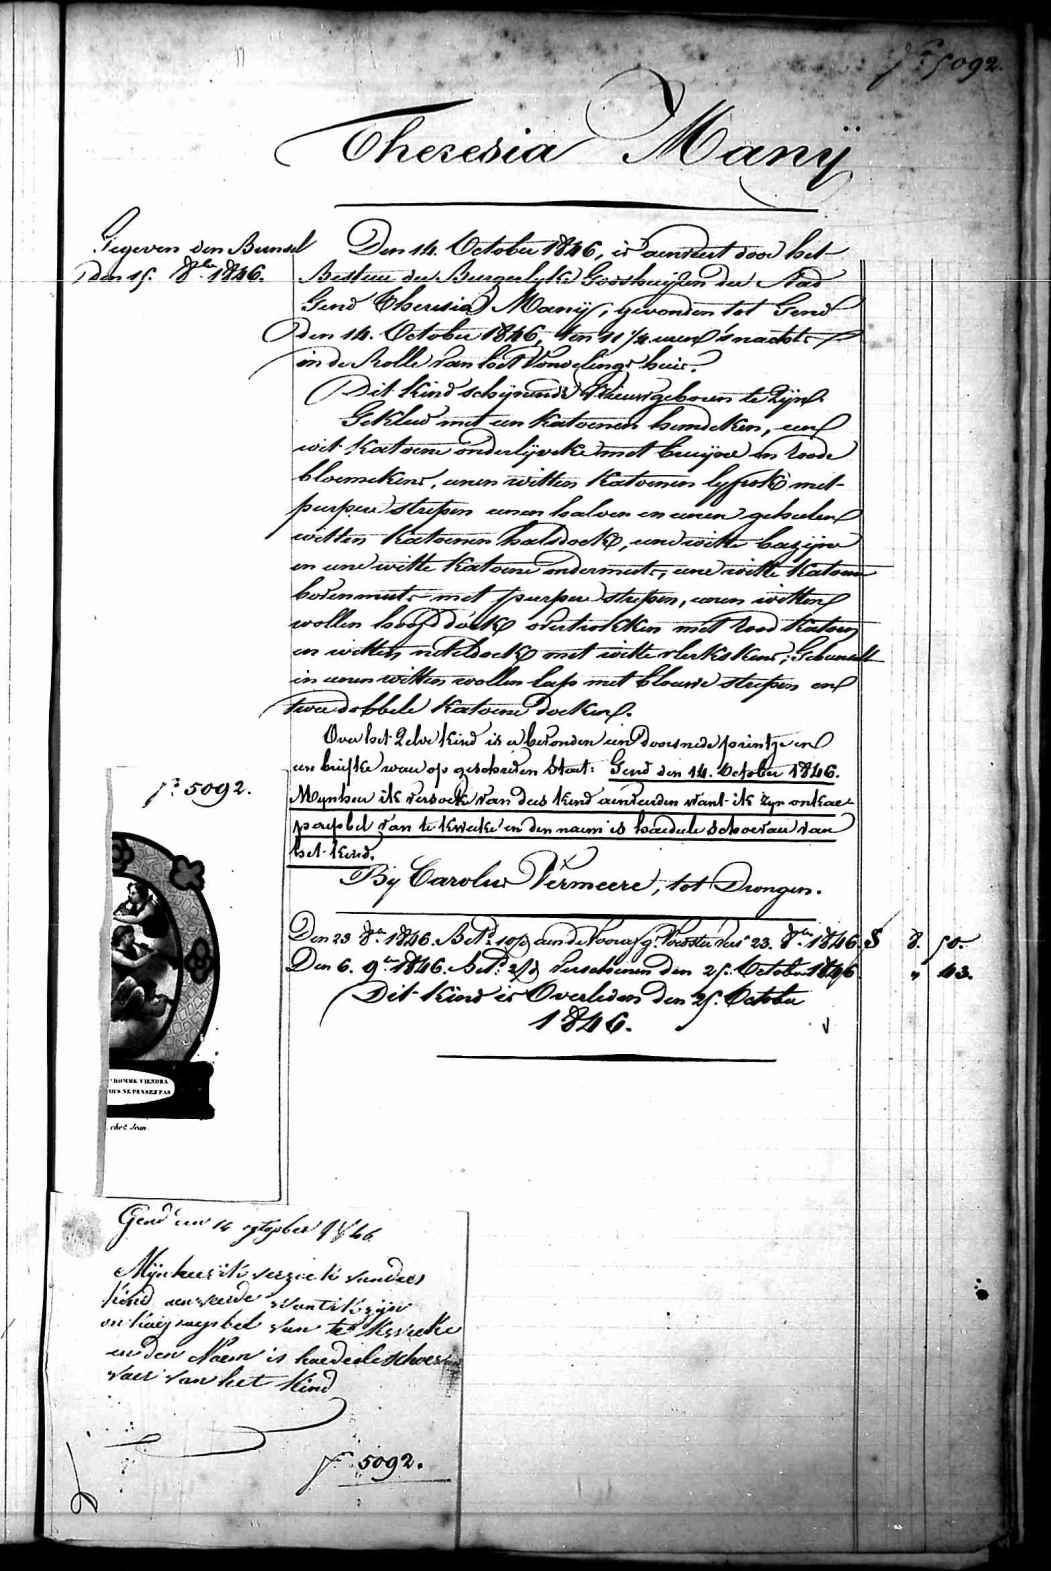 N.º 5092.
Theresia Manÿ
Gegeven den Bunsel
den 15. 8bre 1846.
Den 14. October 1846, is aenveert door het
Bestier der Burgerlyke Godshuijzen der Stad
Gend Theresia Manÿ, gevonden tot Gend
den 14. October 1846, ten 11 1/4 uren 's nachts
in de Rolle van het Vondelings huis.
Dit kind schijnende Nieuwgeboren te Zijn
Gekleed met een katoenen hemdeken, een
wit katoene onderlijveke met bruijne en roode
bloemekens, eenen witten katoenen lyfrok met
purpere strepen eenen halven en eenen geheelen
witten katoenen halsdoek, eene witte bazijne
en eene witte katoene ondermuts, eene witte katoene
bovenmuts met purpere strepen, eenen witten
wollen hoofddoek overtrokken met rood katoen
en witten neteldoek met witte vlerkskens; Gebunselt
in eenen witten wollen lap met blauwe strepen en
twee dobbele katoene doeken.
Over het Zelve kind is er bevonden een doorsnede printje en
een briefke waer op geschreven Staet: Gend den 14. October 1846.
Mynheer ik versoek van dees kind aenveirden want ik zyn onkae-
paeysbel van te kweeke en den naem is haedeele schoevaer van
het kind.
By Carolus Vermeere, tot Drongen.
Den 23 8bre 1846. Bet. aen de 23. 8bre 1846. 8. 50.
Den 6. 9bre 1846. Bet. verschenen den 25. October 1846 " 43.
Dit kind is Overleden den 25. October
1846.
N.º 5092.
HOMME VIENDRA
NE PENSEZ PAS
Gend den 14 october 1846
Mijnheer ik verzoek van dees
kind aenveerde want ik zijn
onkaeypaeysbel van te kweeke
en den Naem is haedeele schoe
vaer van het kind
N. 5092.